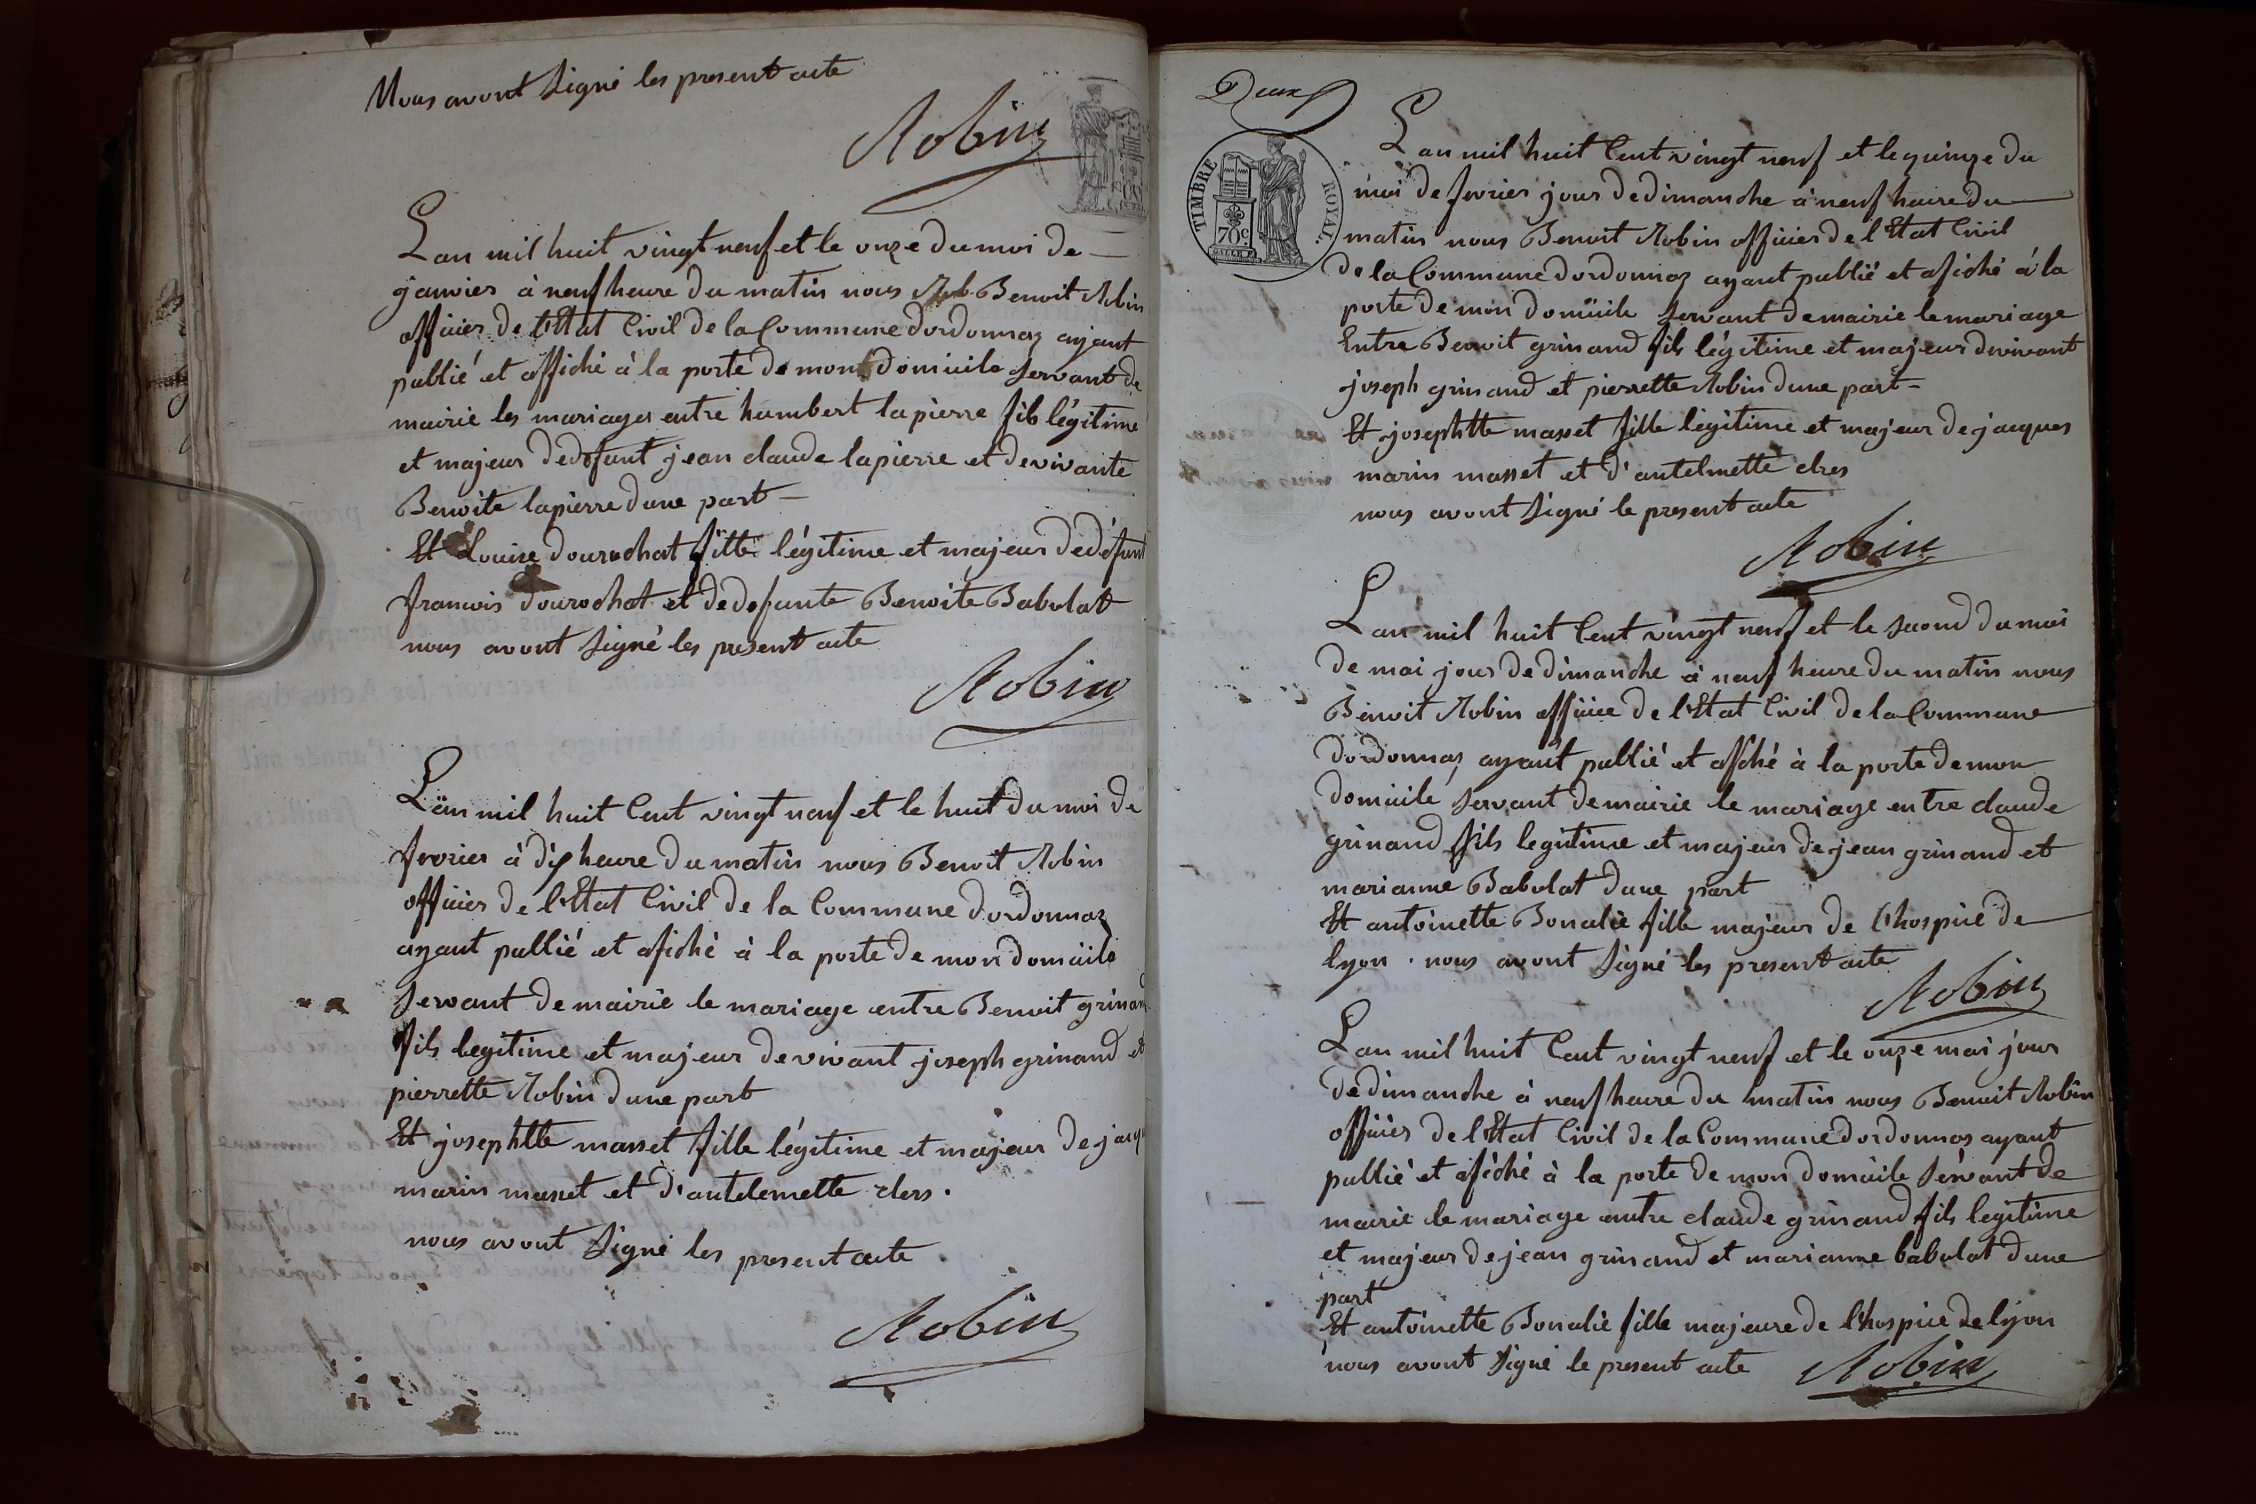 Nous avont signé les present acte
Robin
L'an mil huit vingt neuf et le onze du moi de
janvier à neuf heure du matin nous Rob Benoit Robin
officier de l'Etat Civil de la Commune dordonnaz ayant
publié et affiché à la porte de mon domicile servant de
mairie les mariages entre humbert lapierre fils légitime
et majeur dedefunt jean claude lapierre et de vivante
Benoite lapierre dune part
Et Louise dourochat fille légitime et majeur dedéfunt
francois dourochat et dedefunte Benoite Babolat
nous avont signé les present acte
Robin
Lan mil huit Cent vingt neuf et le huit du moi de
fevrier à dix heure du matin nous Benoit Robin
officier de l'Etat Civil de la Commune dordonnaz
ayant publié et afiché à la porte de mon domicile
servant de mairie le mariage entre Benoit grinand
fils legitime et majeur de vivant joseph grinand et
pierrette Robin dune part
Et josephtte masset fille légitime et majeur de jacq
marin masset et d'antelemette clers.
nous avont signé les present acte
Robin
Deux
TIMBRE ROYAL.
70c.
Lan mil huit Cent vingt neuf et le quinze du
moi de fevrier jour de dimanche à neuf heure du
matin nous Benoit Robin officier de l'Etat Civil
de la Commune dordonnaz ayant publié et afiché à la
porte de mon domicile servant de mairie le mariage
Entre Benoit grinand fils légitime et majeur devivant
joseph grinand et pierrette Robin dune part
Et josephtte masset fille légitime et majeur de jacques
marin masset et d'antelmette clers
nous avont signé le present acte
Robin
Lan mil huit Cent vingt neuf et le second du moi
de mai jour de dimanche à neuf heure du matin nous
Benoit Robin officie de l'Etat Civil de la Commune
dordonnaz ayant publié et afiché à la porte de mon
domicile servant de mairie le mariage entre claude
grinand fils legitime et majeur de jean grinand et
marianne Babolat dune part
Et antoinette Bonalie fille majeur de l'hospice de
lyon. nous avont signé les present acte
Robin
Lan mil huit Cent vingt neuf et le onze mai jour
de dimanche à neuf heure du matin nous Benoit Robin
officier de l'Etat Civil de la Commune dordonnaz ayant
publié et afiché à la porte de mon domicile servant de
mairie le mariage entre claude grinand fils legitime
et majeur de jean grinand et marianne babolat dune
part
Et antoinette Bonalie fille majeure de l'hospice de lyon
nous avont signé le present acte Robin